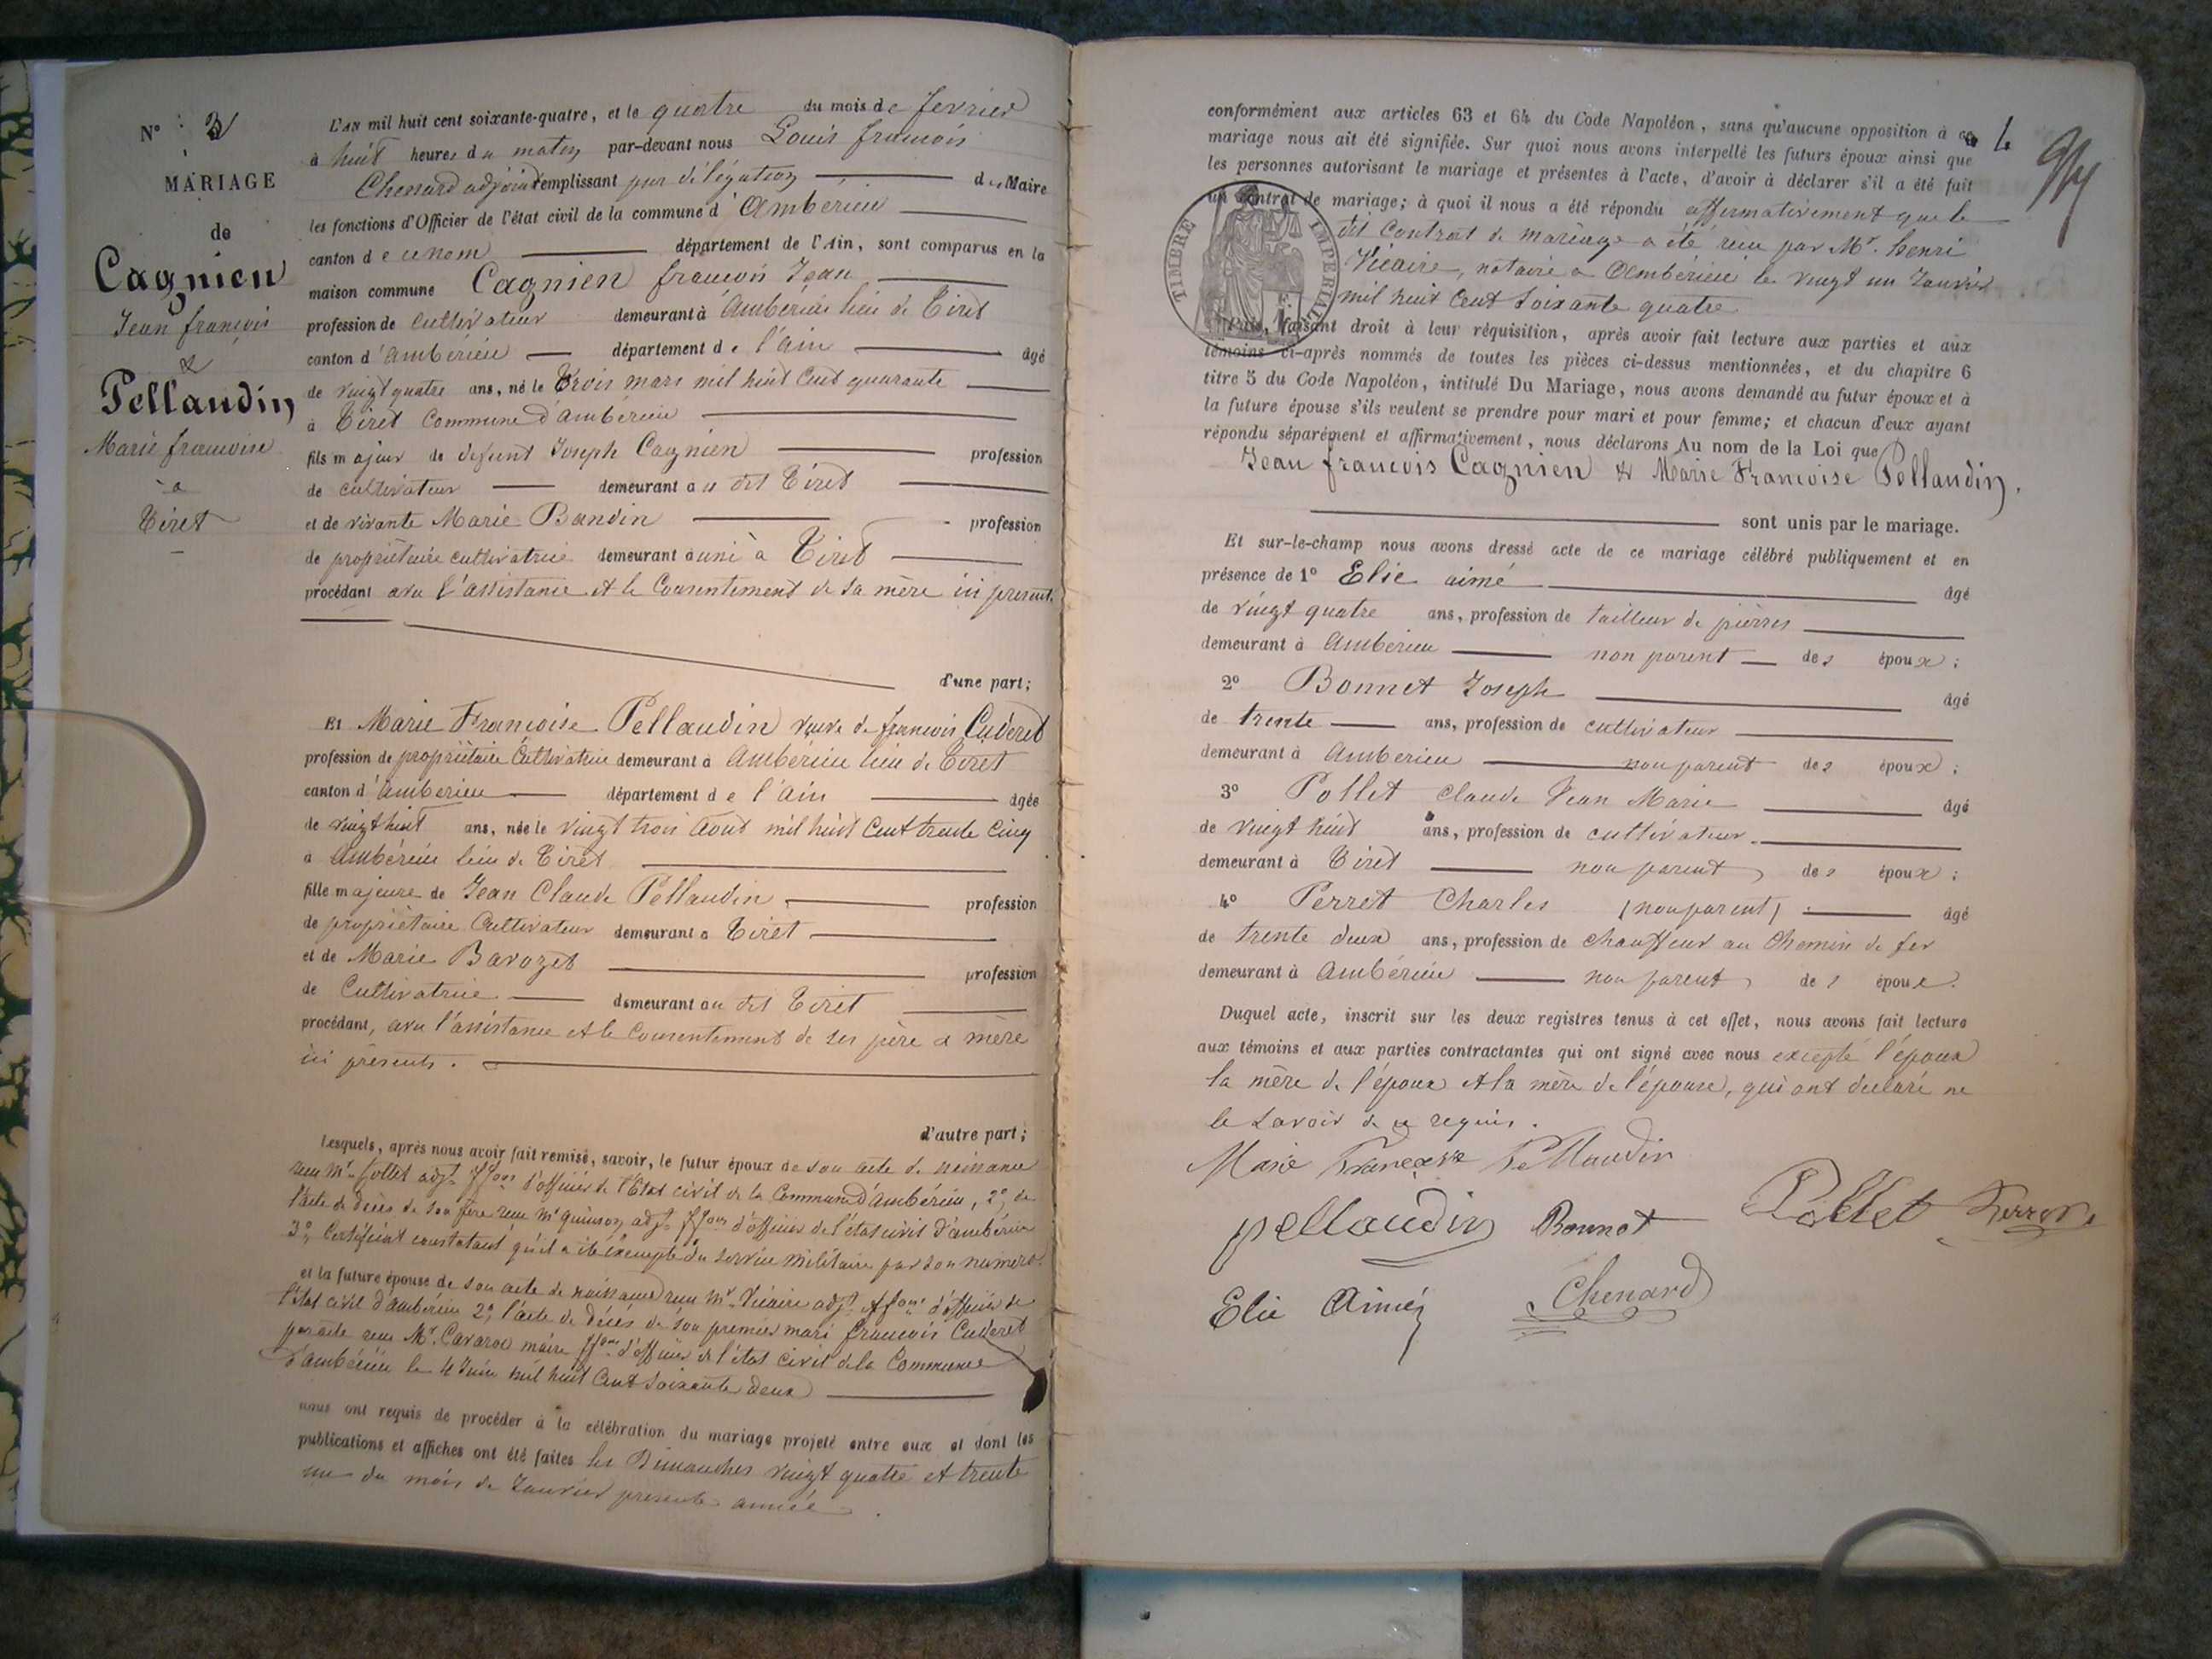 N° 3
MARIAGE
de
Cagnien
Jean françois
&
Pellaudin
Marie francoise
à
Tiret
L'AN mil huit cent soixante-quatre, et le quatre du mois de fevrier
à huit heures du matin par-devant nous Louis francois
Chenard adjoint remplissant par délégation du Maire
les fonctions d'Officier de l'état civil de la commune d'Ambérieu
canton de ce nom département de l'Ain, sont comparus en la
maison commune Cagnien francois Jean
profession de cultivateur demeurant à Ambérieu lieu de Tiret
canton d'ambérieu département de l'ain âgé
de vingt quatre ans, né le Trois mars mil huit cent quarante
à Tiret Commune d'ambérieu
fils majeur de defunt Joseph Cagnien profession
de cultivateur demeurant au dit Tiret
et de vivante Marie Bandin profession
de propriétaire cultivatrice demeurant à Tiret
procédant avec l'assistance et le Consentement de sa mère ici présente.
d'une part;
Et Marie Francoise Pellaudin veuve de francois Cuderet
profession de propriétaire Cultivatrice demeurant à Ambérieu lieu de Tiret
canton d'ambérieu département de l'ain âgée
de vingt huit ans, née le vingt trois Aout mil huit Cent trente Cinq
à Ambérieu lieu de Tiret
fille majeure de Jean Claude Pellaudin profession
de propriétaire Cultivateur demeurant à Tiret
et de Marie Bavozet profession
de Cultivatrice demeurant au dit Tiret
procédant, avec l'assistance et le Consentement de ses père & mère
ici présents.
d'autre part;
Lesquels, après nous avoir fait remise, savoir, le futur époux de son acte de naissance
reçu Mr adjt ffons d'officier de l'Etat civil de la Commune d'ambérieu, 2° de
l'acte de décès de son père reçu Mr adjt ffons d'officier de l'état civil d'ambérieu
3° Certificat constatant qu'il a été exempté du service militaire par son numéro.
et la future épouse de son acte de naissance reçu Mr Vicaire adjt ffons d'officier de
l'état civil d'ambérieu 2° l'acte de décès de son premier mari francois Cuderet
par acte reçu Mr Cavaroc maire ffons d'officier de l'état civil de la Commune
d'ambérieu le 4 Juin mil huit Cent soixante deux
nous ont requis de procéder à la célébration du mariage projeté entre eux et dont les
publications et affiches ont été faites les Dimanches vingt quatre et trente
un du mois de Janvier présente année.
4
conformément aux articles 63 et 64 du Code Napoléon, sans qu'aucune opposition à ce
mariage nous ait été signifiée. Sur quoi nous avons interpellé les futurs époux ainsi que
les personnes autorisant le mariage et présentes à l'acte, d'avoir à déclarer s'il a été fait
un contrat de mariage; à quoi il nous a été répondu affirmativement que le
dit Contrat de mariage a été reçu par Mr. henri
Vicaire, notaire à Ambérieu le vingt un Janvier
mil huit Cent soixante quatre
TIMBRE IMPERIAL
Puis, faisant droit à leur réquisition, après avoir fait lecture aux parties et aux
témoins ci-après nommés de toutes les pièces ci-dessus mentionnées, et du chapitre 6
titre 5 du Code Napoléon, intitulé Du Mariage, nous avons demandé au futur époux et à
la future épouse s'ils veulent se prendre pour mari et pour femme; et chacun d'eux ayant
répondu séparément et affirmativement, nous déclarons Au nom de la Loi que
Jean francois Cagnien & Marie Francoise Pellaudin,
sont unis par le mariage.
Et sur-le-champ nous avons dressé acte de ce mariage célébré publiquement et en
présence de 1° Elie aimé âgé
de vingt quatre ans, profession de tailleur de pierres
demeurant à Ambérieu non parent des époux;
2° Bonnet Joseph âgé
de trente ans, profession de cultivateur
demeurant à Ambérieu non parent des époux;
3° Pollet Claude Jean Marie âgé
de vingt huit ans, profession de cultivateur
demeurant à Tiret non parent des époux;
4° Perret Charles (non parent) âgé
de trente deux ans, profession de chauffeur au Chemin de fer
demeurant à Ambérieu non parent des époux.
Duquel acte, inscrit sur les deux registres tenus à cet effet, nous avons fait lecture
aux témoins et aux parties contractantes qui ont signé avec nous excepté l'époux
la mère de l'époux et la mère de l'épouse, qui ont déclaré ne
le savoir de ce requis.
Marie Françoise Pellaudin
pellaudin Bonnet Pollet Perret
Elie Aimé Chenard